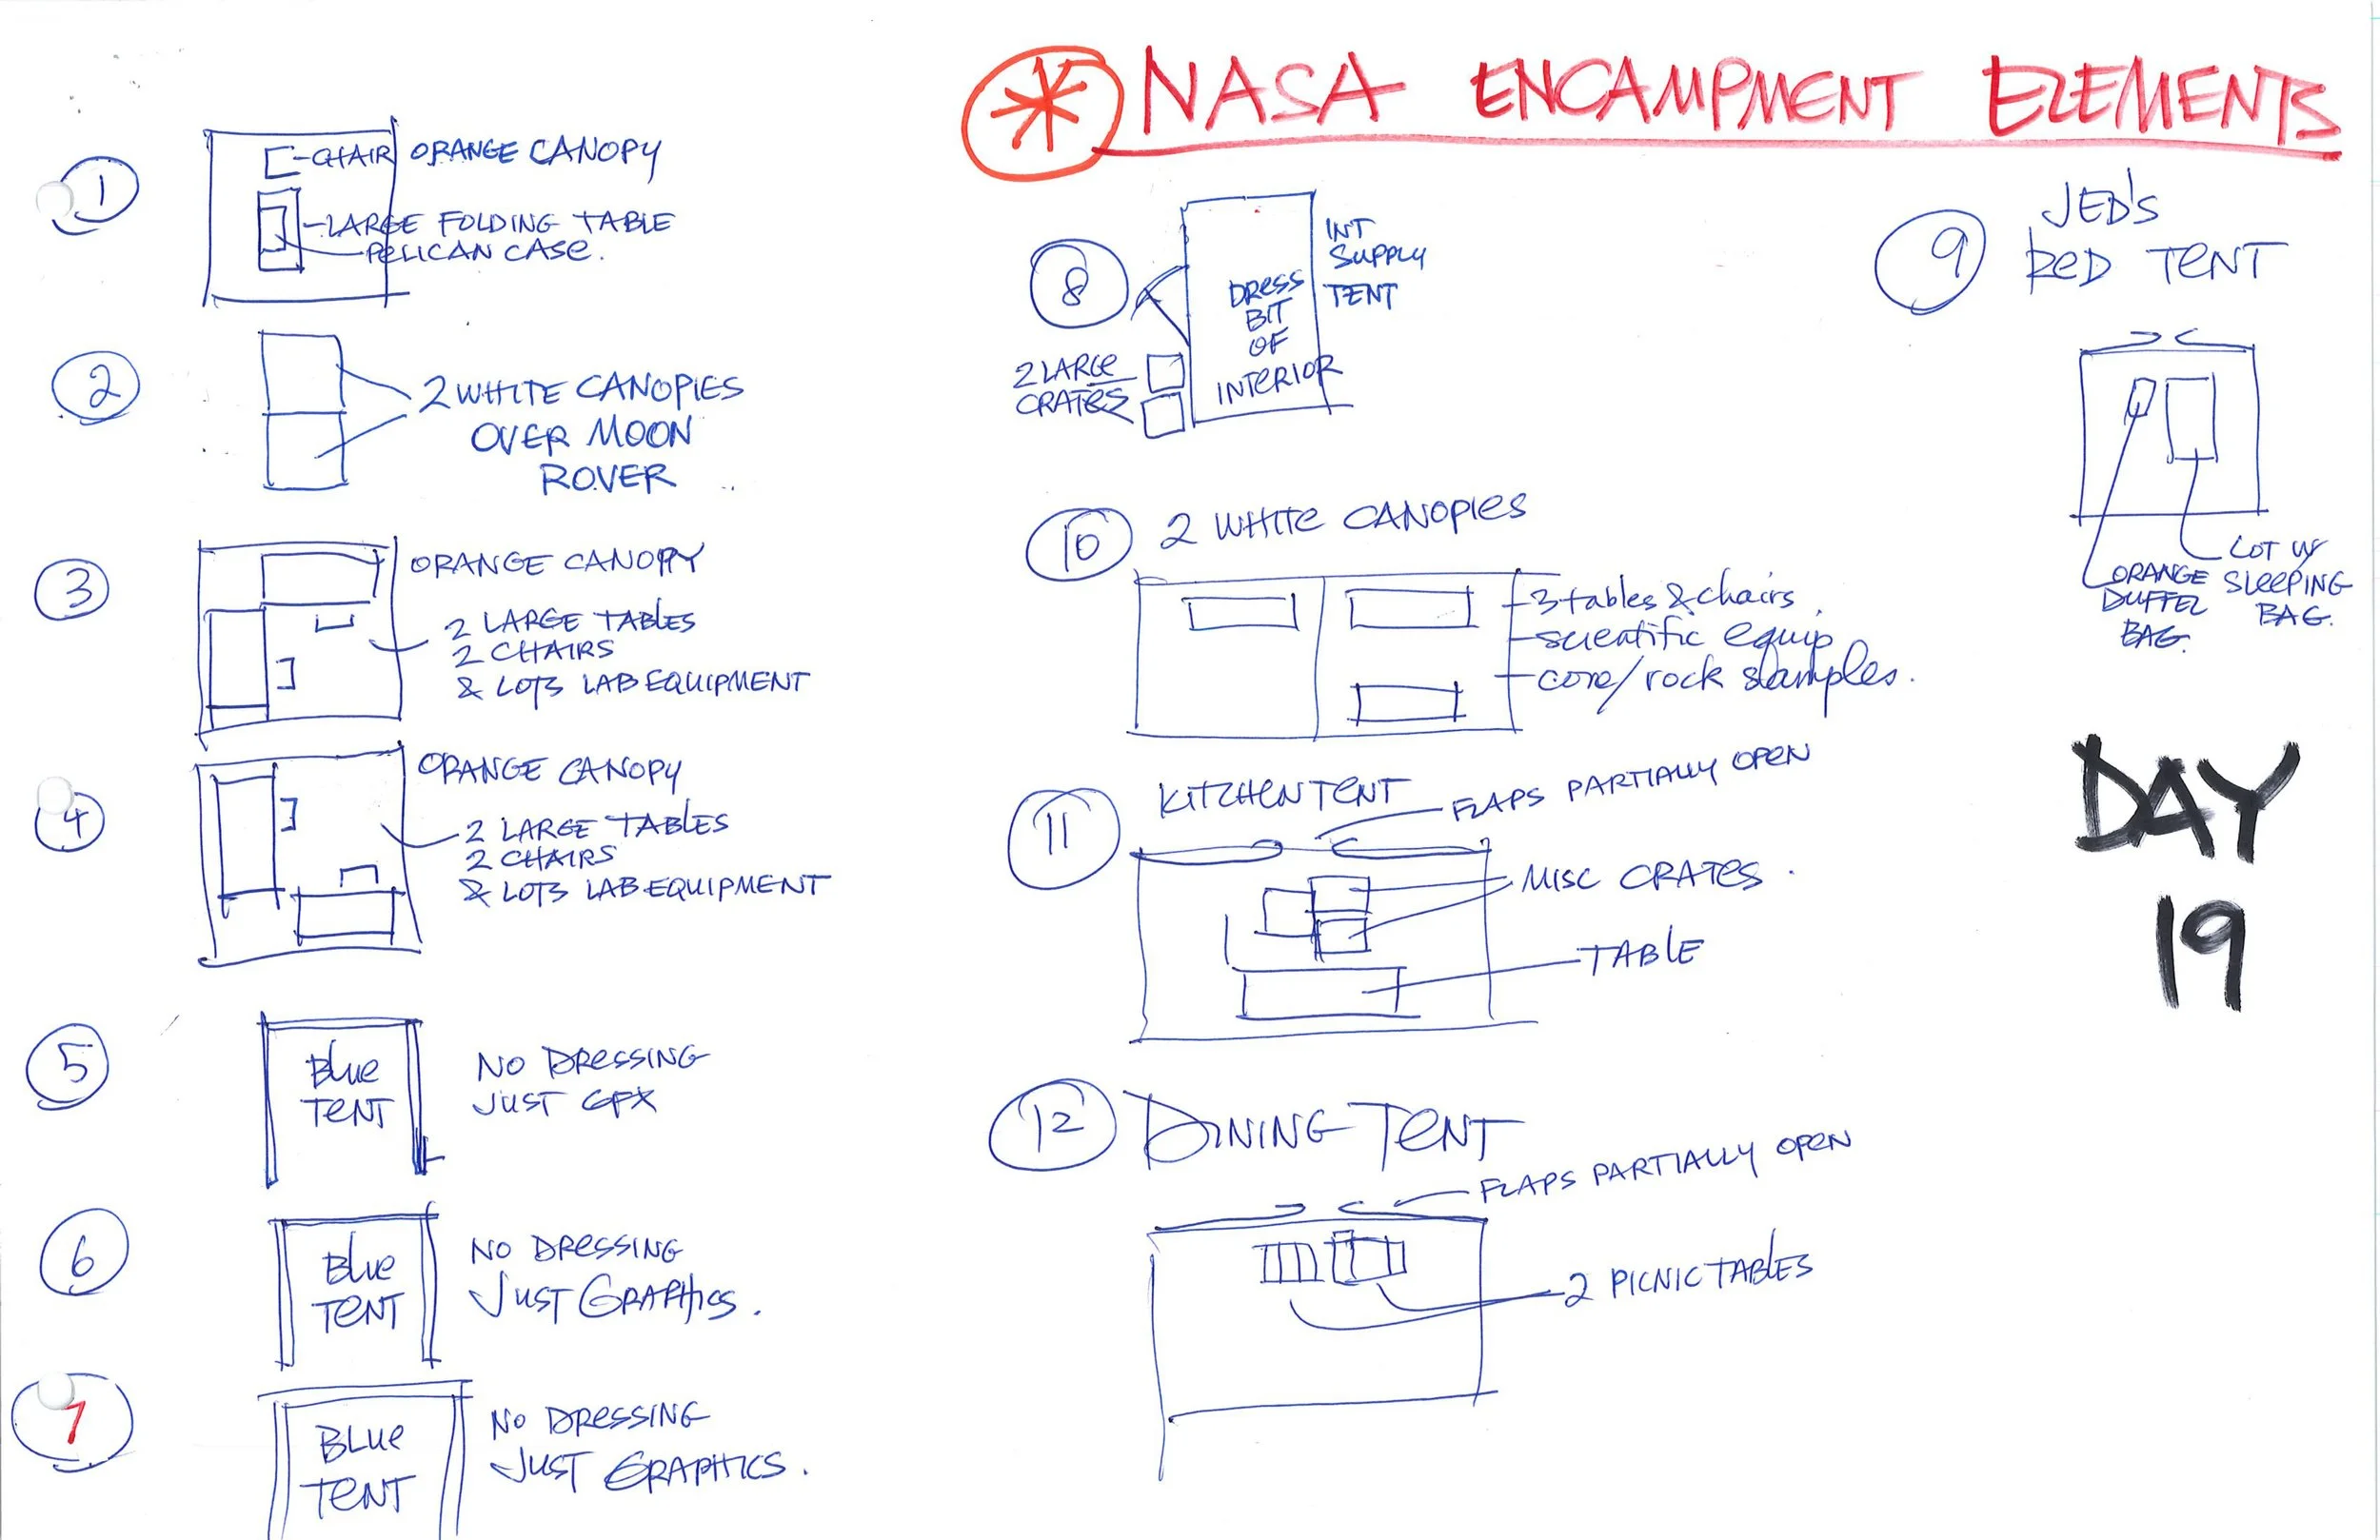 * NASA ENCAMPMENT ELEMENTS
1
CHAIR
ORANGE CANOPY
LARGE FOLDING TABLE
PELICAN CASE.
2
2 WHITE CANOPIES
OVER MOON
ROVER
3
ORANGE CANOPY
2 LARGE TABLES
2 CHAIRS
& LOTS LAB EQUIPMENT
4
ORANGE CANOPY
2 LARGE TABLES
2 CHAIRS
& LOTS LAB EQUIPMENT
5
BLUE
TENT
NO DRESSING
JUST GFX
6
BLUE
TENT
NO DRESSING
JUST GRAPHICS.
7
BLUE
TENT
NO DRESSING
JUST GRAPHICS.
8
INT
SUPPLY
TENT
DRESS
BIT
OF
INTERIOR
2 LARGE
CRATES
9
JED'S
RED TENT
COT W/
SLEEPING
BAG.
ORANGE
DUFFEL
BAG.
10
2 WHITE CANOPIES
3 tables & chairs.
scientific equip
core/rock slamples.
11
KITCHEN TENT
FLAPS PARTIALLY OPEN
MISC CRATES
TABLE
12
DINING TENT
FLAPS PARTIALLY OPEN
2 PICNIC TABLES
DAY
19